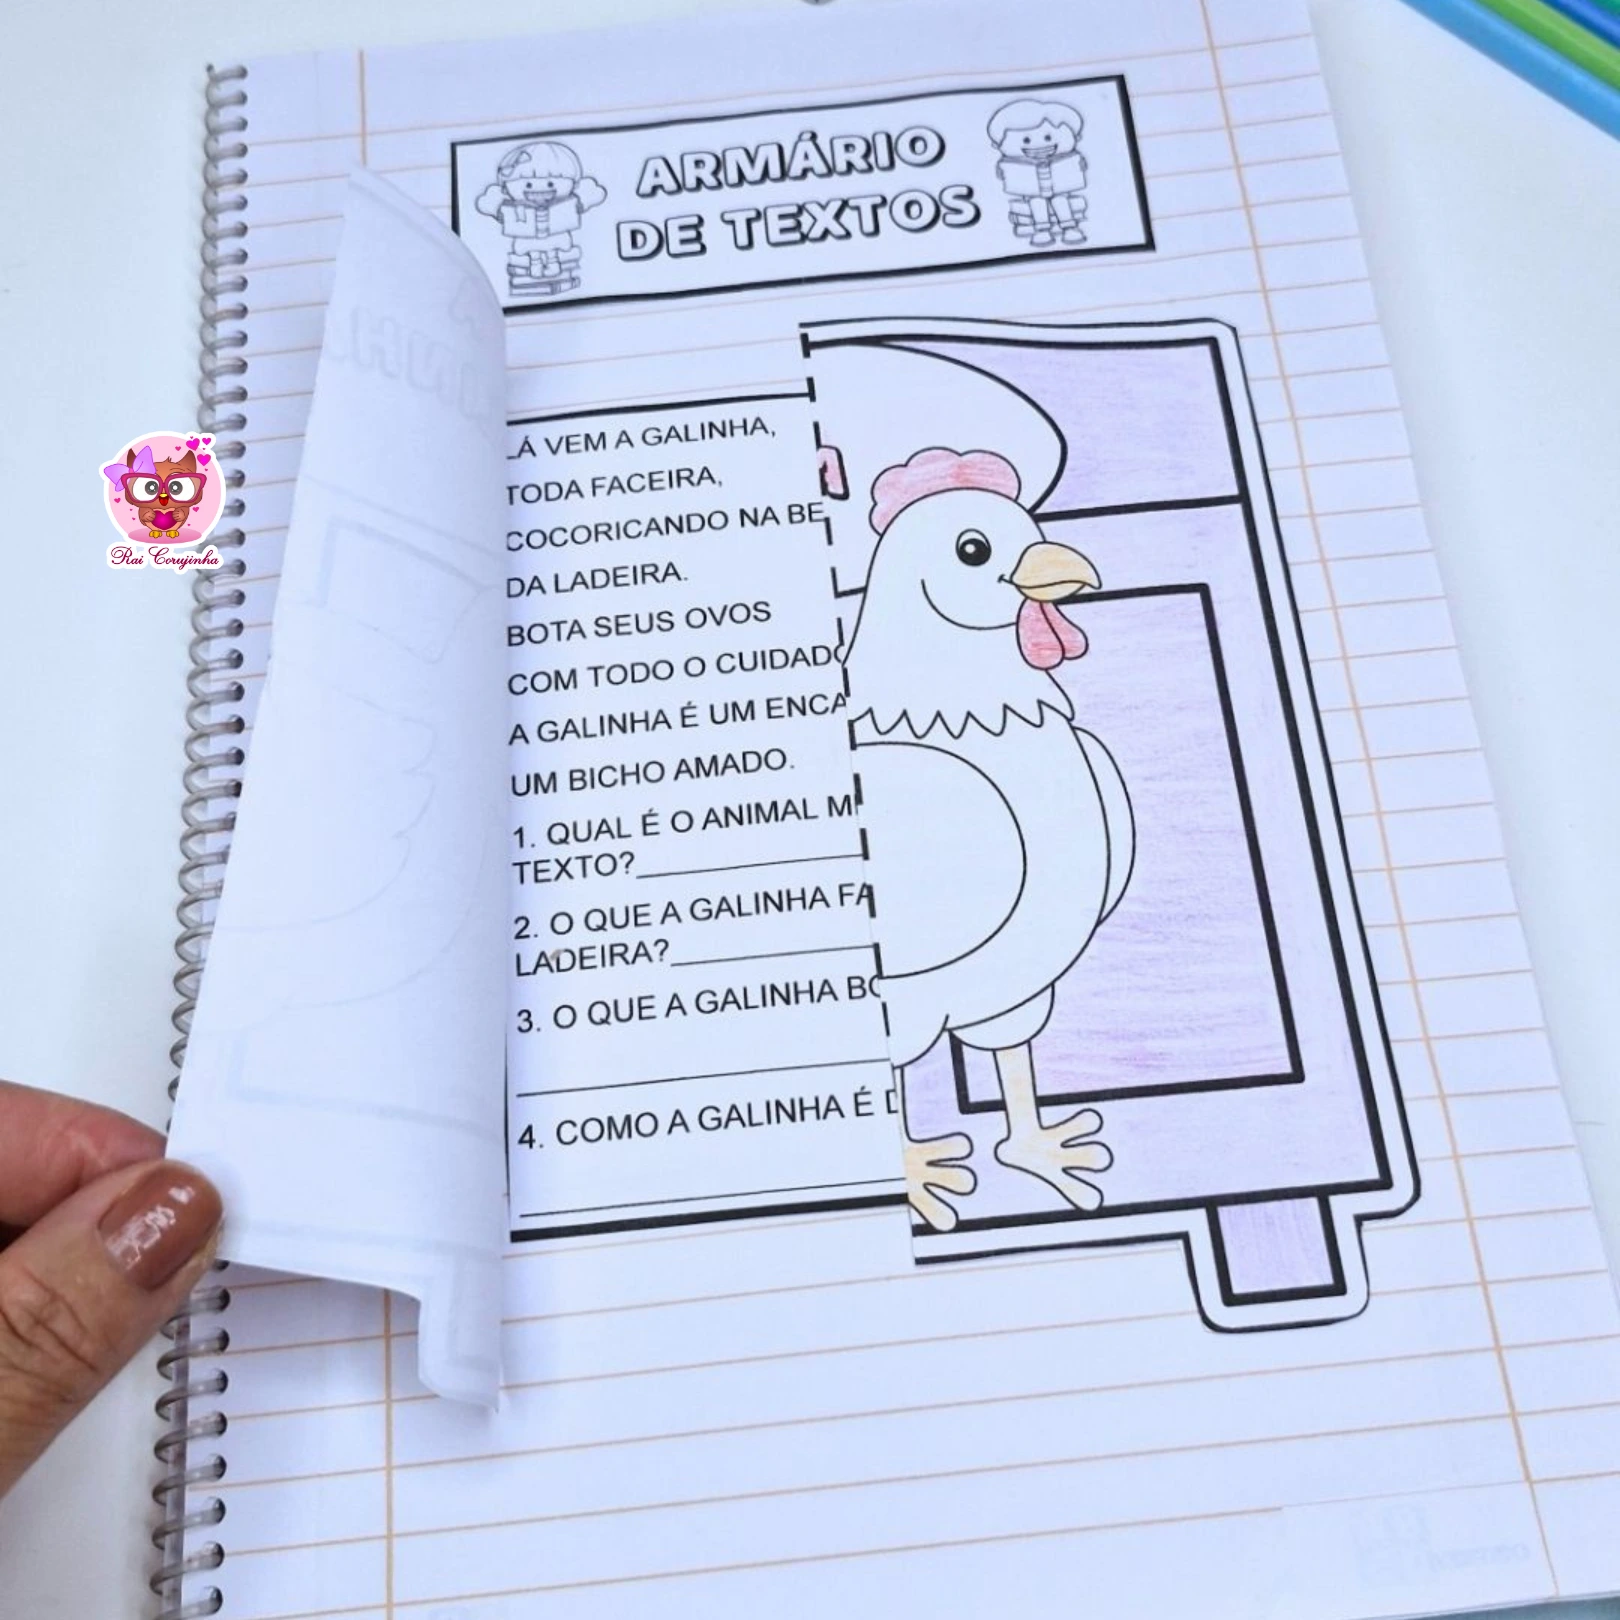 ARMÁRIO
DE TEXTOS
LÁ VEM A GALINHA,
TODA FACEIRA,
COCORICANDO NA BE
DA LADEIRA.
BOTA SEUS OVOS
COM TODO O CUIDADO
A GALINHA É UM ENCA
UM BICHO AMADO.
1. QUAL É O ANIMAL M
TEXTO?
2. O QUE A GALINHA FA
LADEIRA?
3. O QUE A GALINHA BO
4. COMO A GALINHA É D
Rai Corujinha